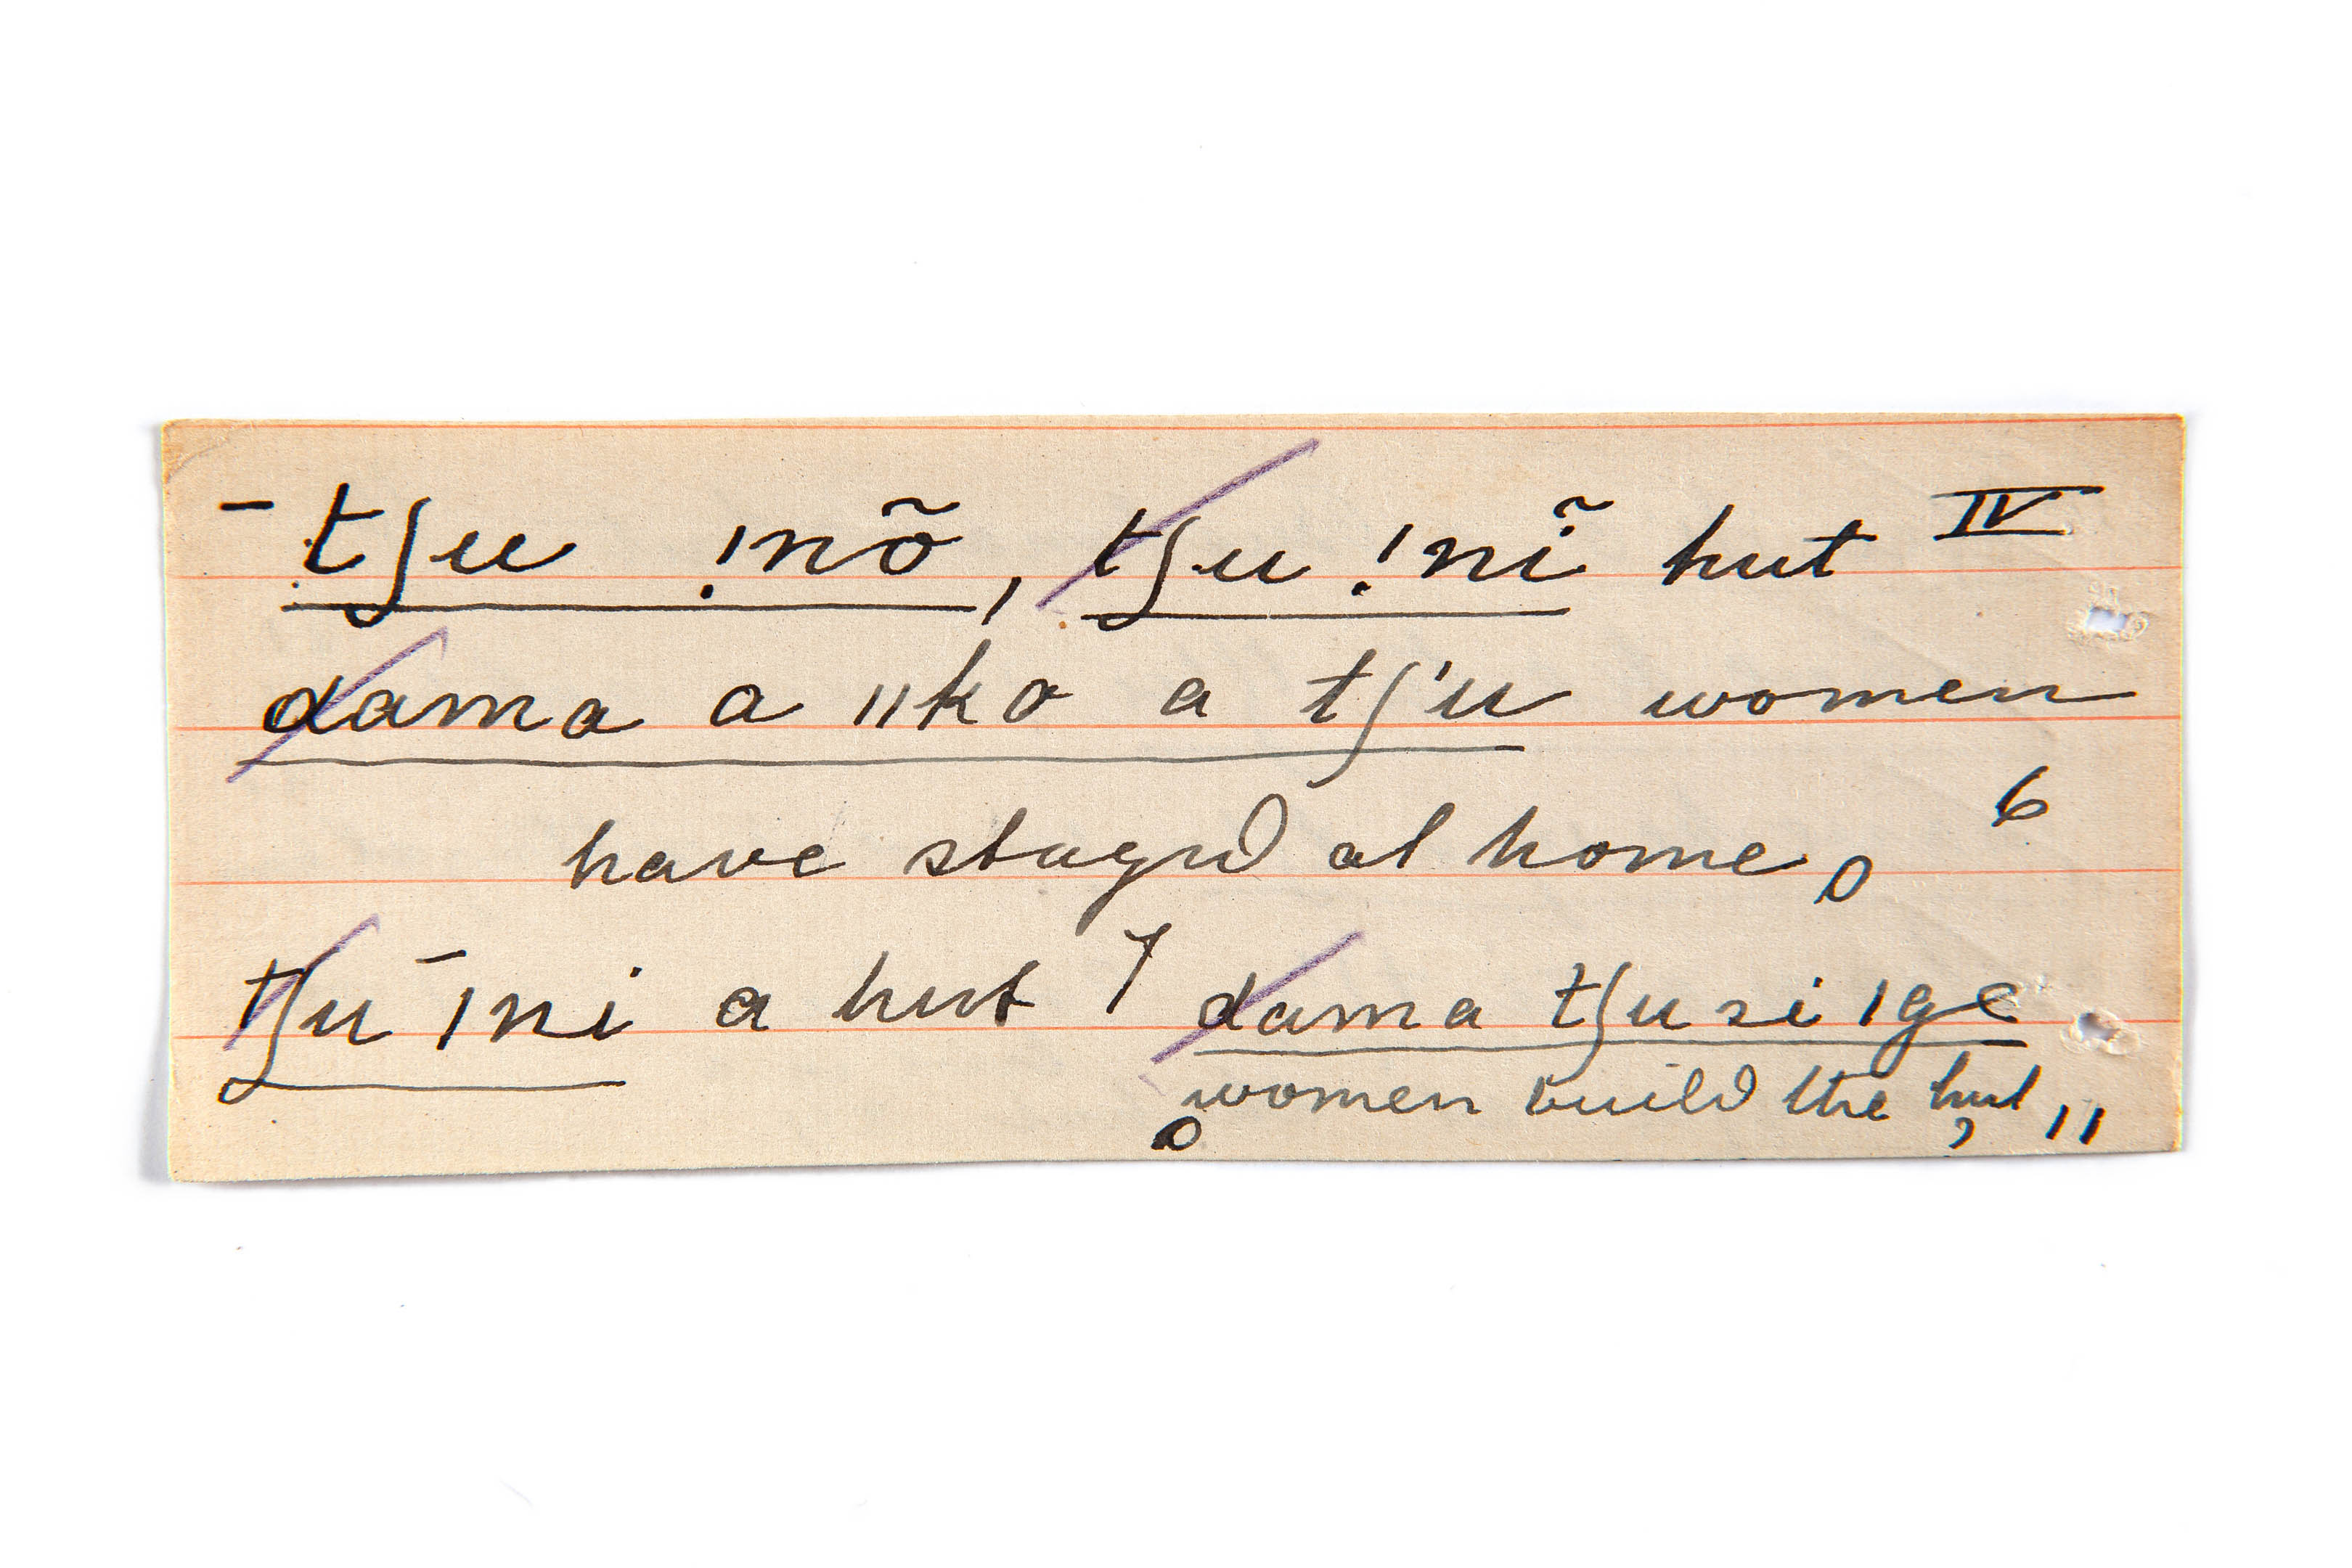 – tʃu !nõ, tʃu !nĩ hut IV
dama a ǁko a tʃ'u women
have stayed at home. 6
tʃu ̄ ǀni a hut 7 dama tʃu si ǀge
women build the hut, 11